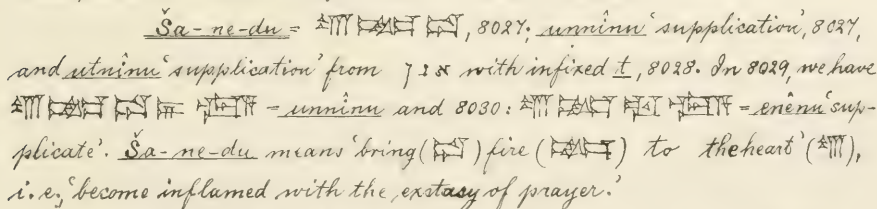 Ša-ne-du = 𒊮 𒉈 𒁺, 8027; unnînu ‘supplication’, 8027,
and utnînu ‘supplication’ from אנן with infixed t, 8028. In 8029, we have
𒊮 𒉈 𒁺 = unnînu and 8030: 𒊮 𒉈 = enênu ‘sup-
plicate’. Ša-ne-du means ‘bring (𒁺) fire (𒉈) to the heart’ (𒊮),
i.e., ‘become inflamed with the extasy of prayer.’